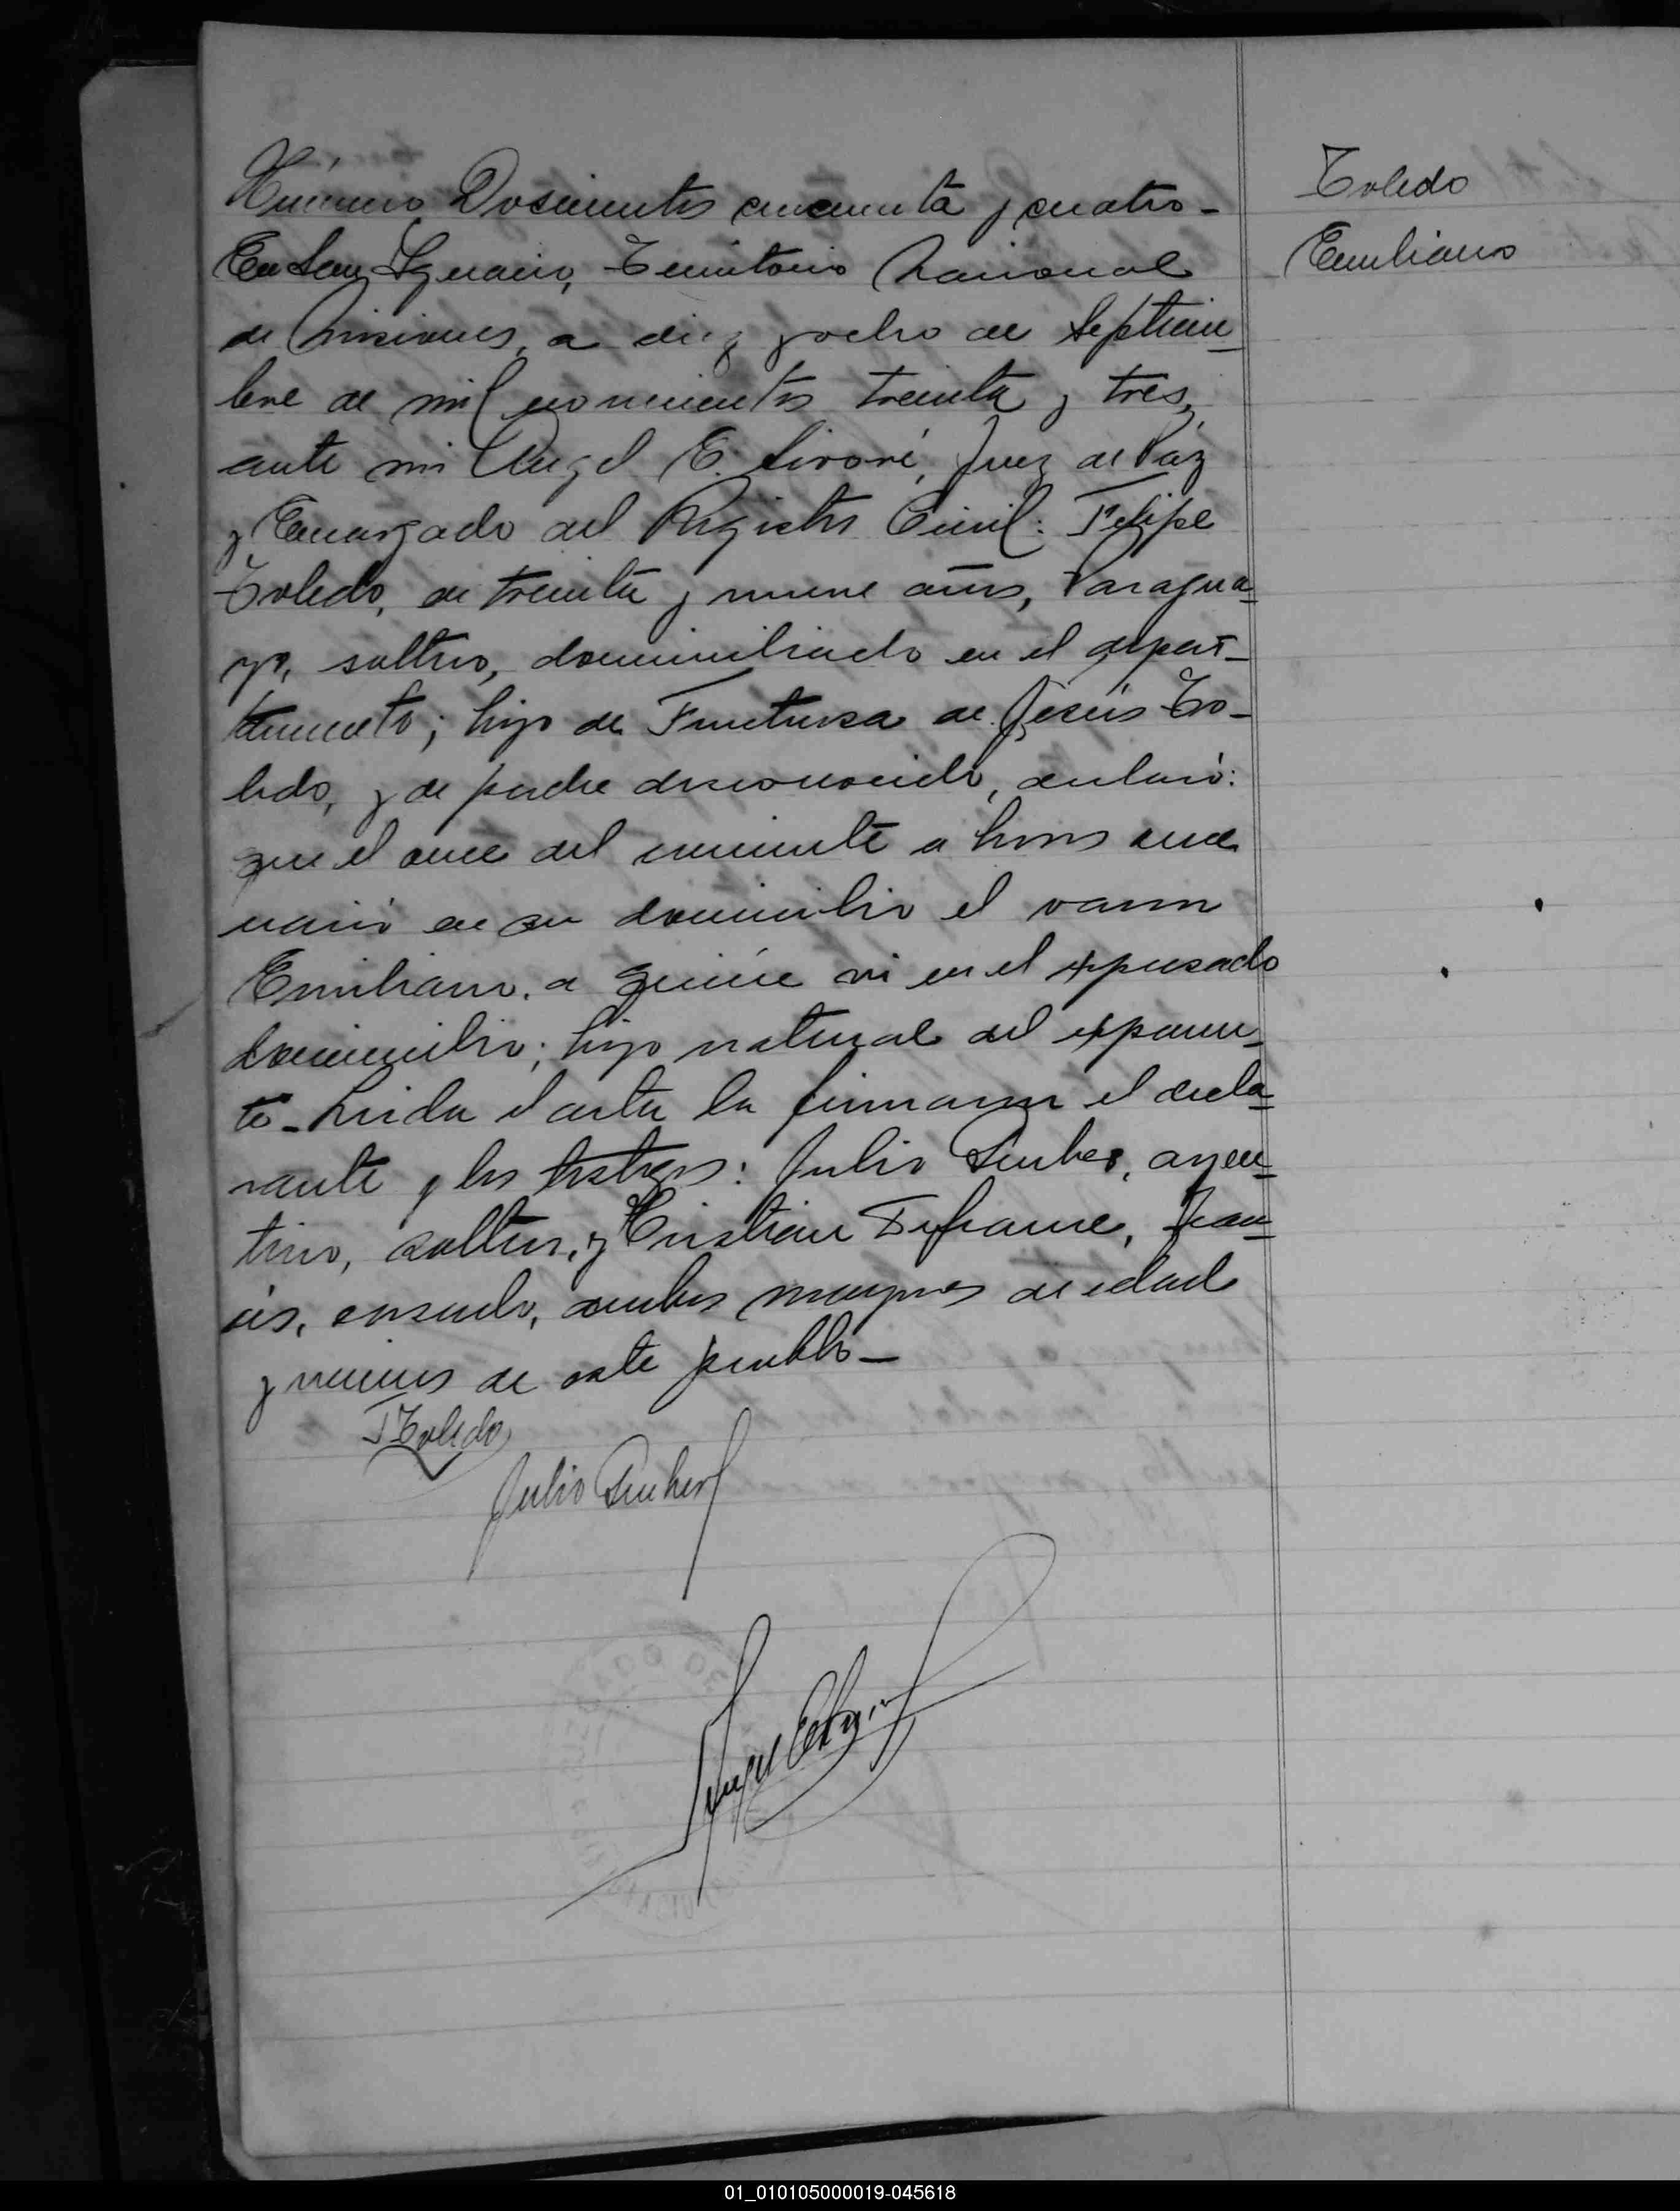 Número Doscientos cincuenta y cuatro-
En San Ignacio, Territorio Nacional
de Misiones, a diez y ocho de Septiem-
bre de mil novecientos treinta y tres,
ante mi Angel E. Jivoré, Juez de Paz
y Encargado del Registro Civil: Felipe
Toledo, de treinta y nueve años, Paragua-
yo, soltero, domiciliado en el depar-
tamento; hijo de Fructuosa de Jesús To-
ledo, y de padre desconocido, declaró:
que el once del corriente a horas once
nació en su domicilio el varon
Emiliano, a quien ví en el expresado
domicilio; hijo natural del exponen-
te- Leida el acta la firmaron el decla-
rante y los testigos: Julio Penher, argen-
tino, soltero, y Cristian Dufrane, fran-
cés, casado, ambos mayores de edad
y vecinos de este pueblo-
F Toledo
Julio Penher
Toledo
Emiliano
01_010105000019-045618